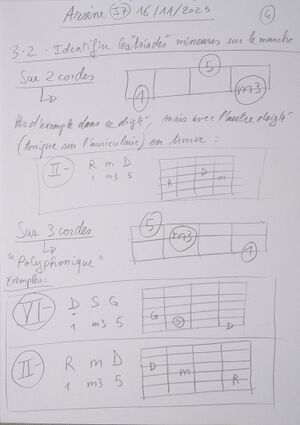 Arsène J7 16/11/2025
4
3-2- Identifier les triades mineures sur le manche
Sur 2 cordes
5
1 m3
Pas d'exemple dans ce doigté, mais avec l'autre doigté
(tonique sur l'auriculaire) on trouve :
II- R m D
1 m3 5
D
R m
Sur 3 cordes
5
m3
1
"Polyphonique"
Exemples:
VI- D S G
1 m3 5
G
S
D
II- R m D
1 m3 5
D
m
R